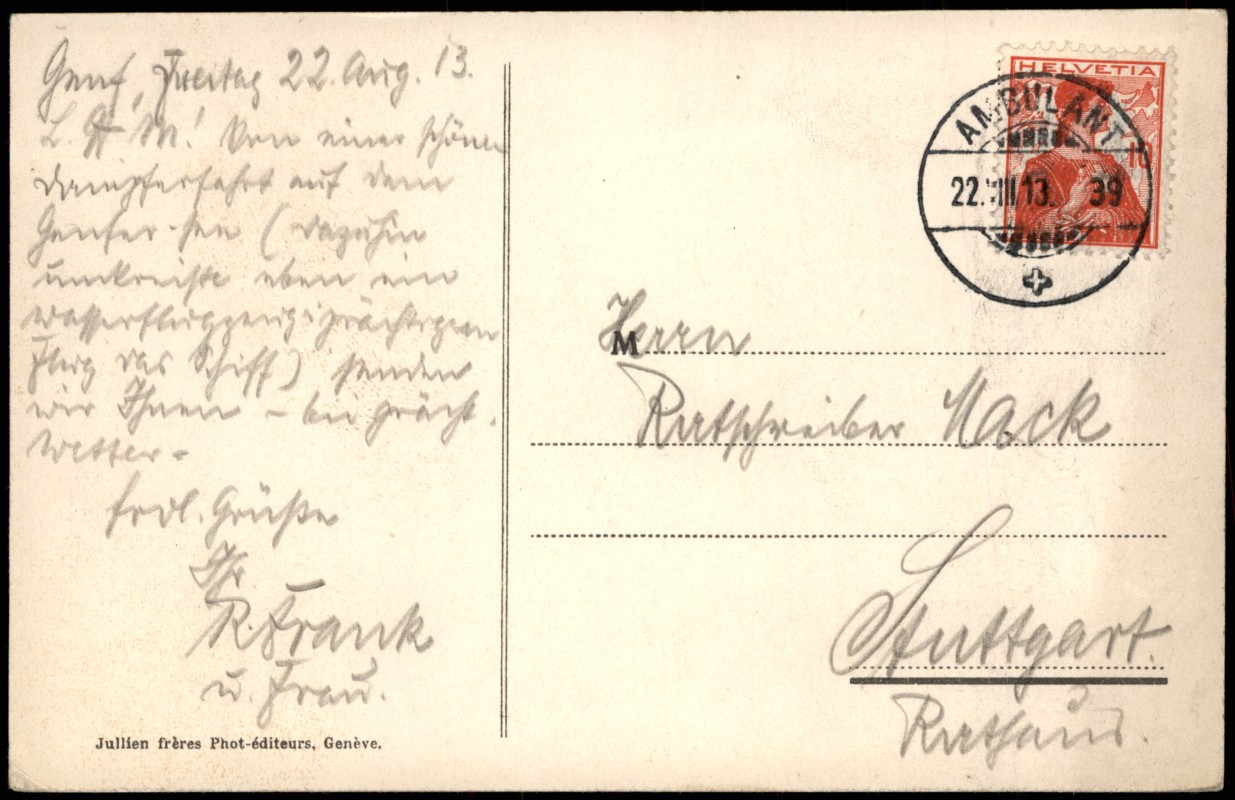 Genf, Freitag 22. Aug. 13.
L. H. M! Von einer schönen
Dampferfahrt auf dem
Genfer-See (
umkreiste eben ein
Wasserflugzeug i. prächtigem
Flug das Schiff) senden
wir Ihnen – bei prächt.
Wetter –
frdl. Grüße
Ihr
R. Frank
u. Frau.
Jullien frères Phot-éditeurs, Genève.
HELVETIA
10
AMBULANT
22.VIII.13. 39
M
Herrn
Ratschreiber Mack
Stuttgart.
Rathaus.